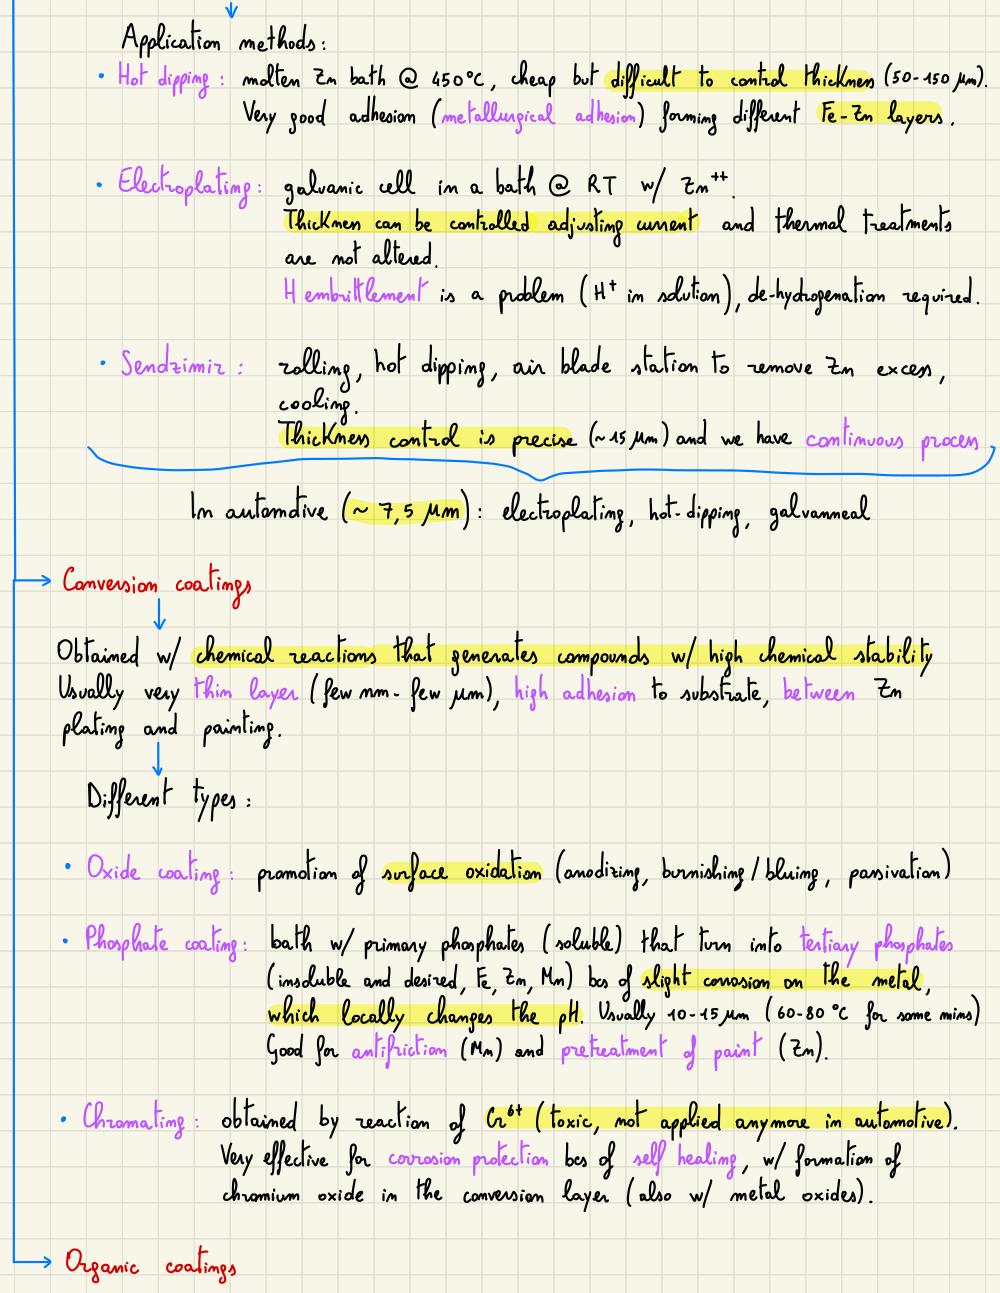 Application methods:
• Hot dipping: molten Zn bath @ 450°C, cheap but difficult to control thickness (50-150 μm).
Very good adhesion (metallurgical adhesion) forming different Fe-Zn layers.
• Electroplating: galvanic cell in a bath @ RT w/ Zn⁺⁺.
Thickness can be controlled adjusting current and thermal treatments
are not altered.
H embrittlement is a problem (H⁺ in solution), de-hydrogenation required.
• Sendzimir: rolling, hot dipping, air blade station to remove Zn excess,
cooling.
Thickness control is precise (~15 μm) and we have continuous process
In automotive (~ 7,5 μm): electroplating, hot-dipping, galvanneal
Conversion coatings
Obtained w/ chemical reactions that generates compounds w/ high chemical stability
Usually very thin layer (few nm - few μm), high adhesion to substrate, between Zn
plating and painting.
Different types:
• Oxide coating: promotion of surface oxidation (anodizing, burnishing/bluing, passivation)
• Phosphate coating: bath w/ primary phosphates (soluble) that turn into tertiary phosphates
(insoluble and desired, Fe, Zn, Mn) bcs of slight corrosion on the metal,
which locally changes the pH. Usually 10-15 μm (60-80 °C for some mins)
Good for antifriction (Mn) and pretreatment of paint (Zn).
• Chromating: obtained by reaction of Cr⁶⁺ (toxic, not applied anymore in automotive).
Very effective for corrosion protection bcs of self healing, w/ formation of
chromium oxide in the conversion layer (also w/ metal oxides).
Organic coatings